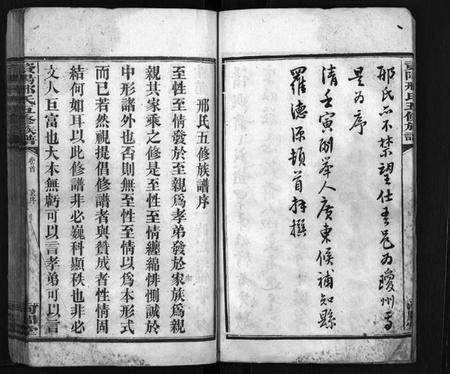 邢氏不禁望仕吾邑为瓊州
是为序
清壬寅科举人廣東候補知縣
羅德源頓首拜撰
邢氏五修族譜序
至性至情發於至親爲孝弟發於家族爲親
親其家乘之修是至性至情纏綿悱惻誠於
中形諸外也否則無至性至情以爲本形式
而已若然視提倡修譜者與贊成者性情固
結何如耳以此修譜非必巍科顯秩也非必
文人巨富也大本無虧可以言孝弟可以言
邢氏五修族譜
卷首